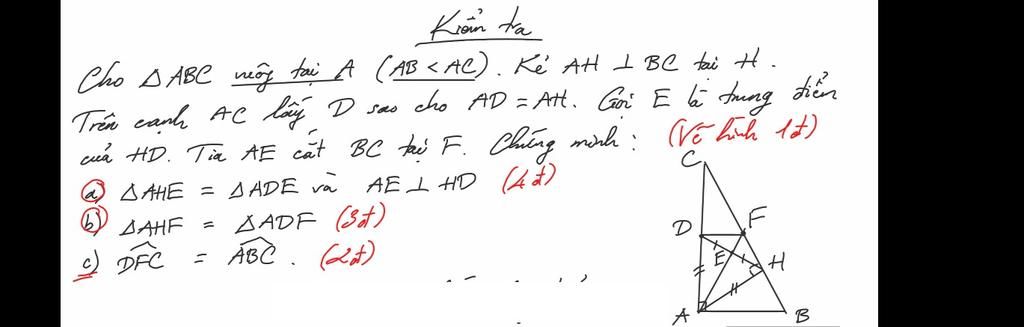 Kiểm tra
Cho △ABC vuông tại A (AB < AC). Kẻ AH ⊥ BC tại H.
Trên cạnh AC lấy D sao cho AD = AH. Gọi E là trung điểm
của HD. Tia AE cắt BC tại F. Chứng minh: (Vẽ hình 1đ)
a) △AHE = △ADE và AE ⊥ HD (4đ)
b) △AHF = △ADF (3đ)
c) \widehat{DFC} = \widehat{ABC}. (2đ)
C
D
F
E
H
A
B